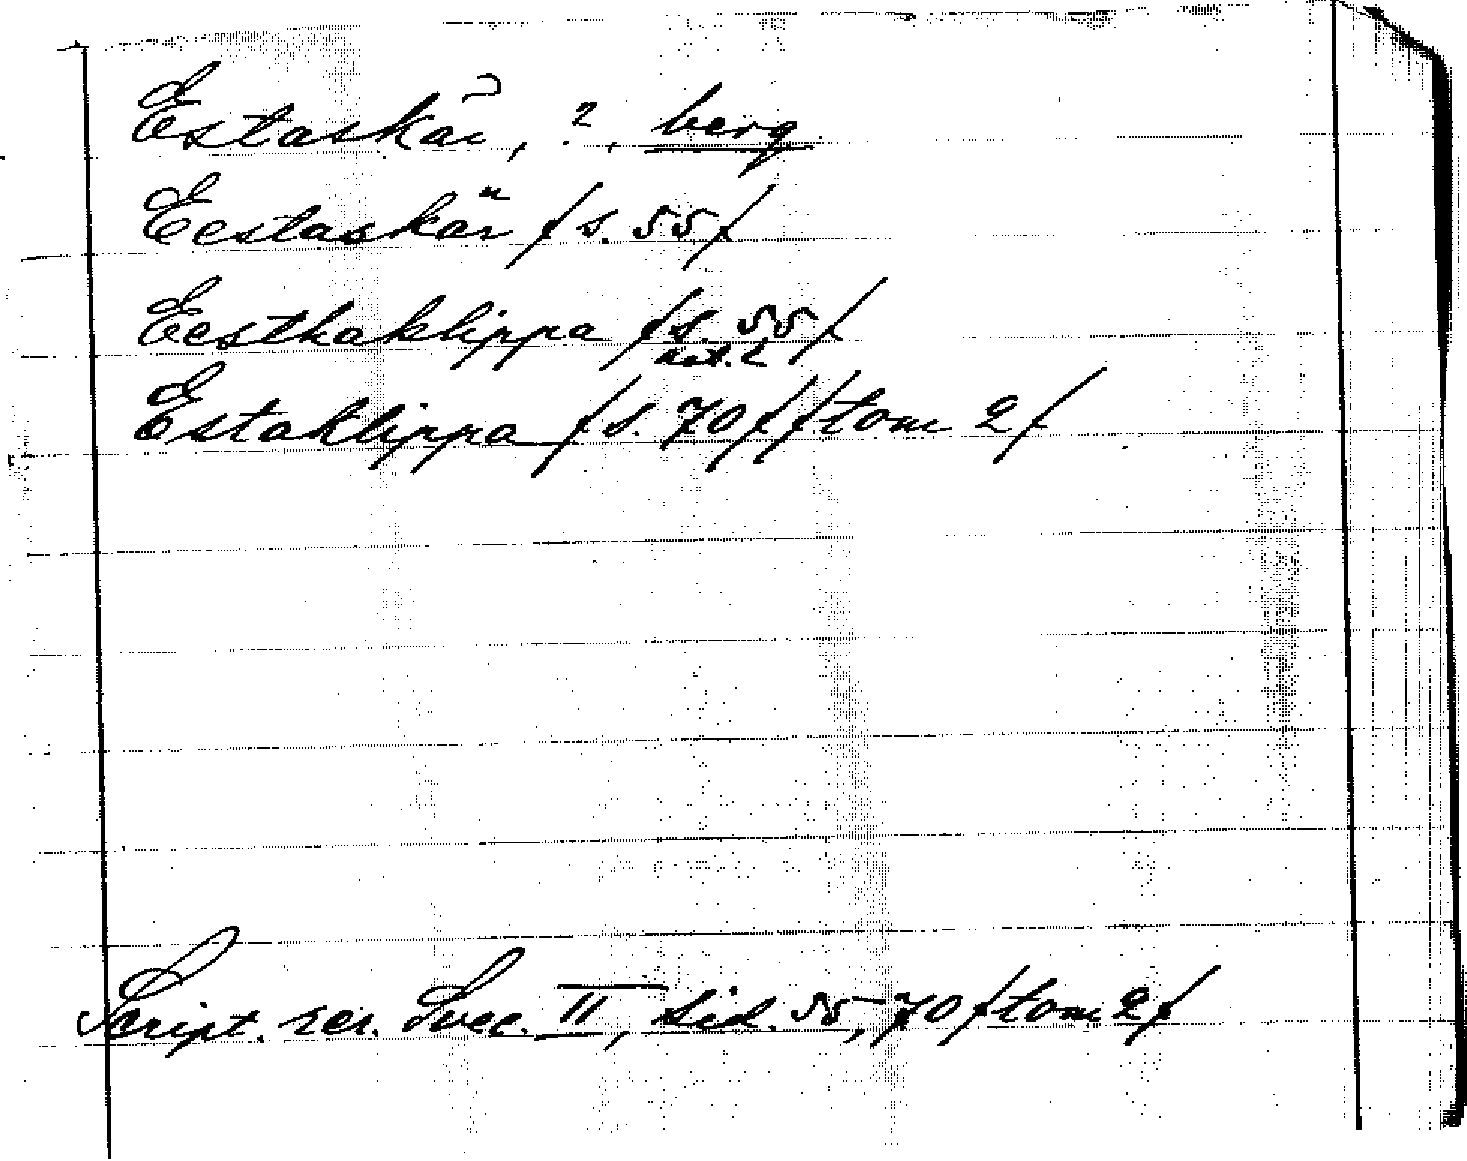 Estaskär, ?, berg
Eestaskär /s. 55/
Eesthaklippa /s. 55/
not. 2
Estaklippa /s. 70/ /tom 2/
Script. rer. Svec. II, sid. 55, 70 /tom 2/